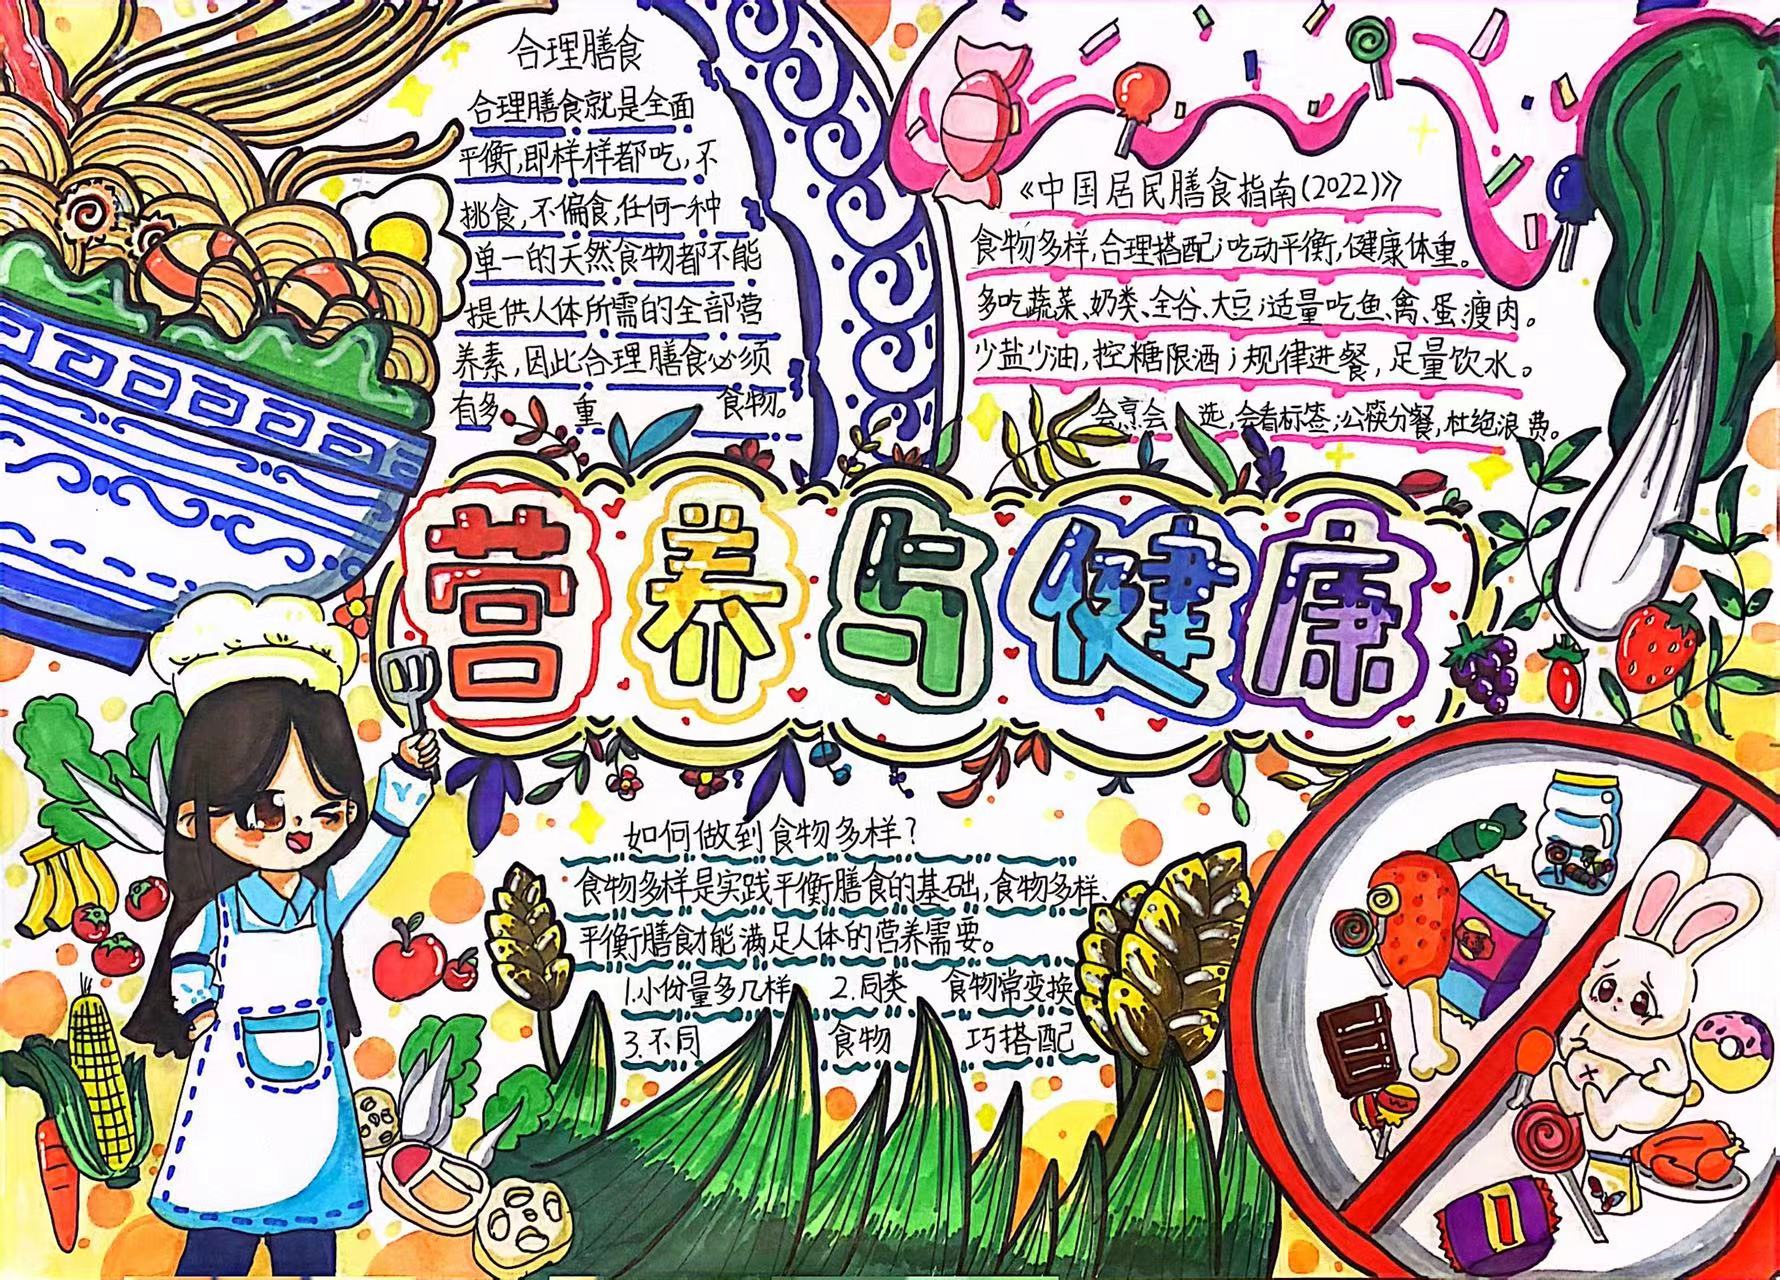 合理膳食
合理膳食就是全面
平衡,即样样都吃,不
挑食,不偏食,任何一种
单一的天然食物都不能
提供人体所需的全部营
养素,因此合理膳食必须
有多 重 食物。
《中国居民膳食指南(2022)》
食物多样,合理搭配;吃动平衡,健康体重。
多吃蔬菜、奶类、全谷、大豆;适量吃鱼、禽、蛋、瘦肉。
少盐少油,控糖限酒;规律进餐,足量饮水。
会烹会 选,会看标签;公筷分餐,杜绝浪费。
营养与健康
如何做到食物多样?
食物多样是实践平衡膳食的基础,食物多样、
平衡膳食才能满足人体的营养需要。
1.小份量多几样 2.同类 食物常变换
3.不同 食物 巧搭配